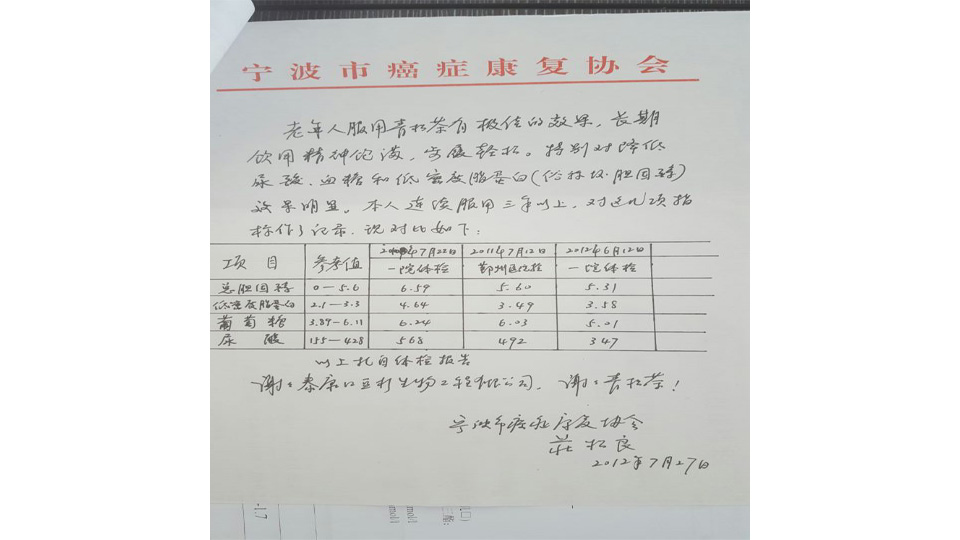 宁波市癌症康复协会
老年人服用青松茶有极佳的效果，长期
饮用精神饱满，步履轻松。特别对降低
尿酸、血糖和低密度脂蛋白(俗称坏胆固醇)
效果明显。本人连续服用三年以上，对这几项指
标作了记录，现对比如下：
项目 参考值 年7月22日 2011年7月12日 2012年6月12日
一院体检 鄞州医院检 一院体检
总胆固醇 0—5.6 6.59 5.60 5.31
低密度脂蛋白 2.1—3.3 4.64 3.49 3.58
葡萄糖 3.89—6.11 6.24 6.03 5.01
尿酸 155—428 568 492 347
以上扎自体检报告
谢谢泰康 生物工程有限公司，谢谢青松茶！
宁波市癌症康复协会
莊松良
2012年7月27日
mol/l
mol/l
-1.7